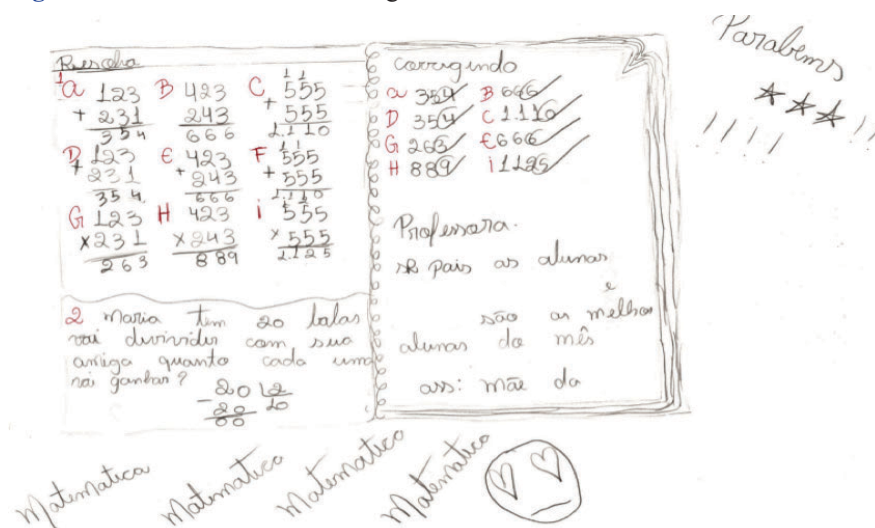 Resolva
1
a 123 B 423 C 555
+ 231 243 + 555
354 666 1.110
D 123 E 423 F 555
+ 231 + 243 + 555
354 666 1.110
G 123 H 423 i 555
x 231 x 243 x 555
263 889 1.125
2 maria tem 20 balas
vai divinidir com sua
amiga quanto cada uma
vai ganhar?
- 20 2
20 10
00
corrigindo
a 354 B 666
D 354 C 1.110
G 263 E 666
H 889 i 1125
Professora.
pais as alunas
e
são as melhor
alunas do mês
ass: mãe da
Parabems
! ! ! ! ! !
Matematica Matematica Matematica Matematica